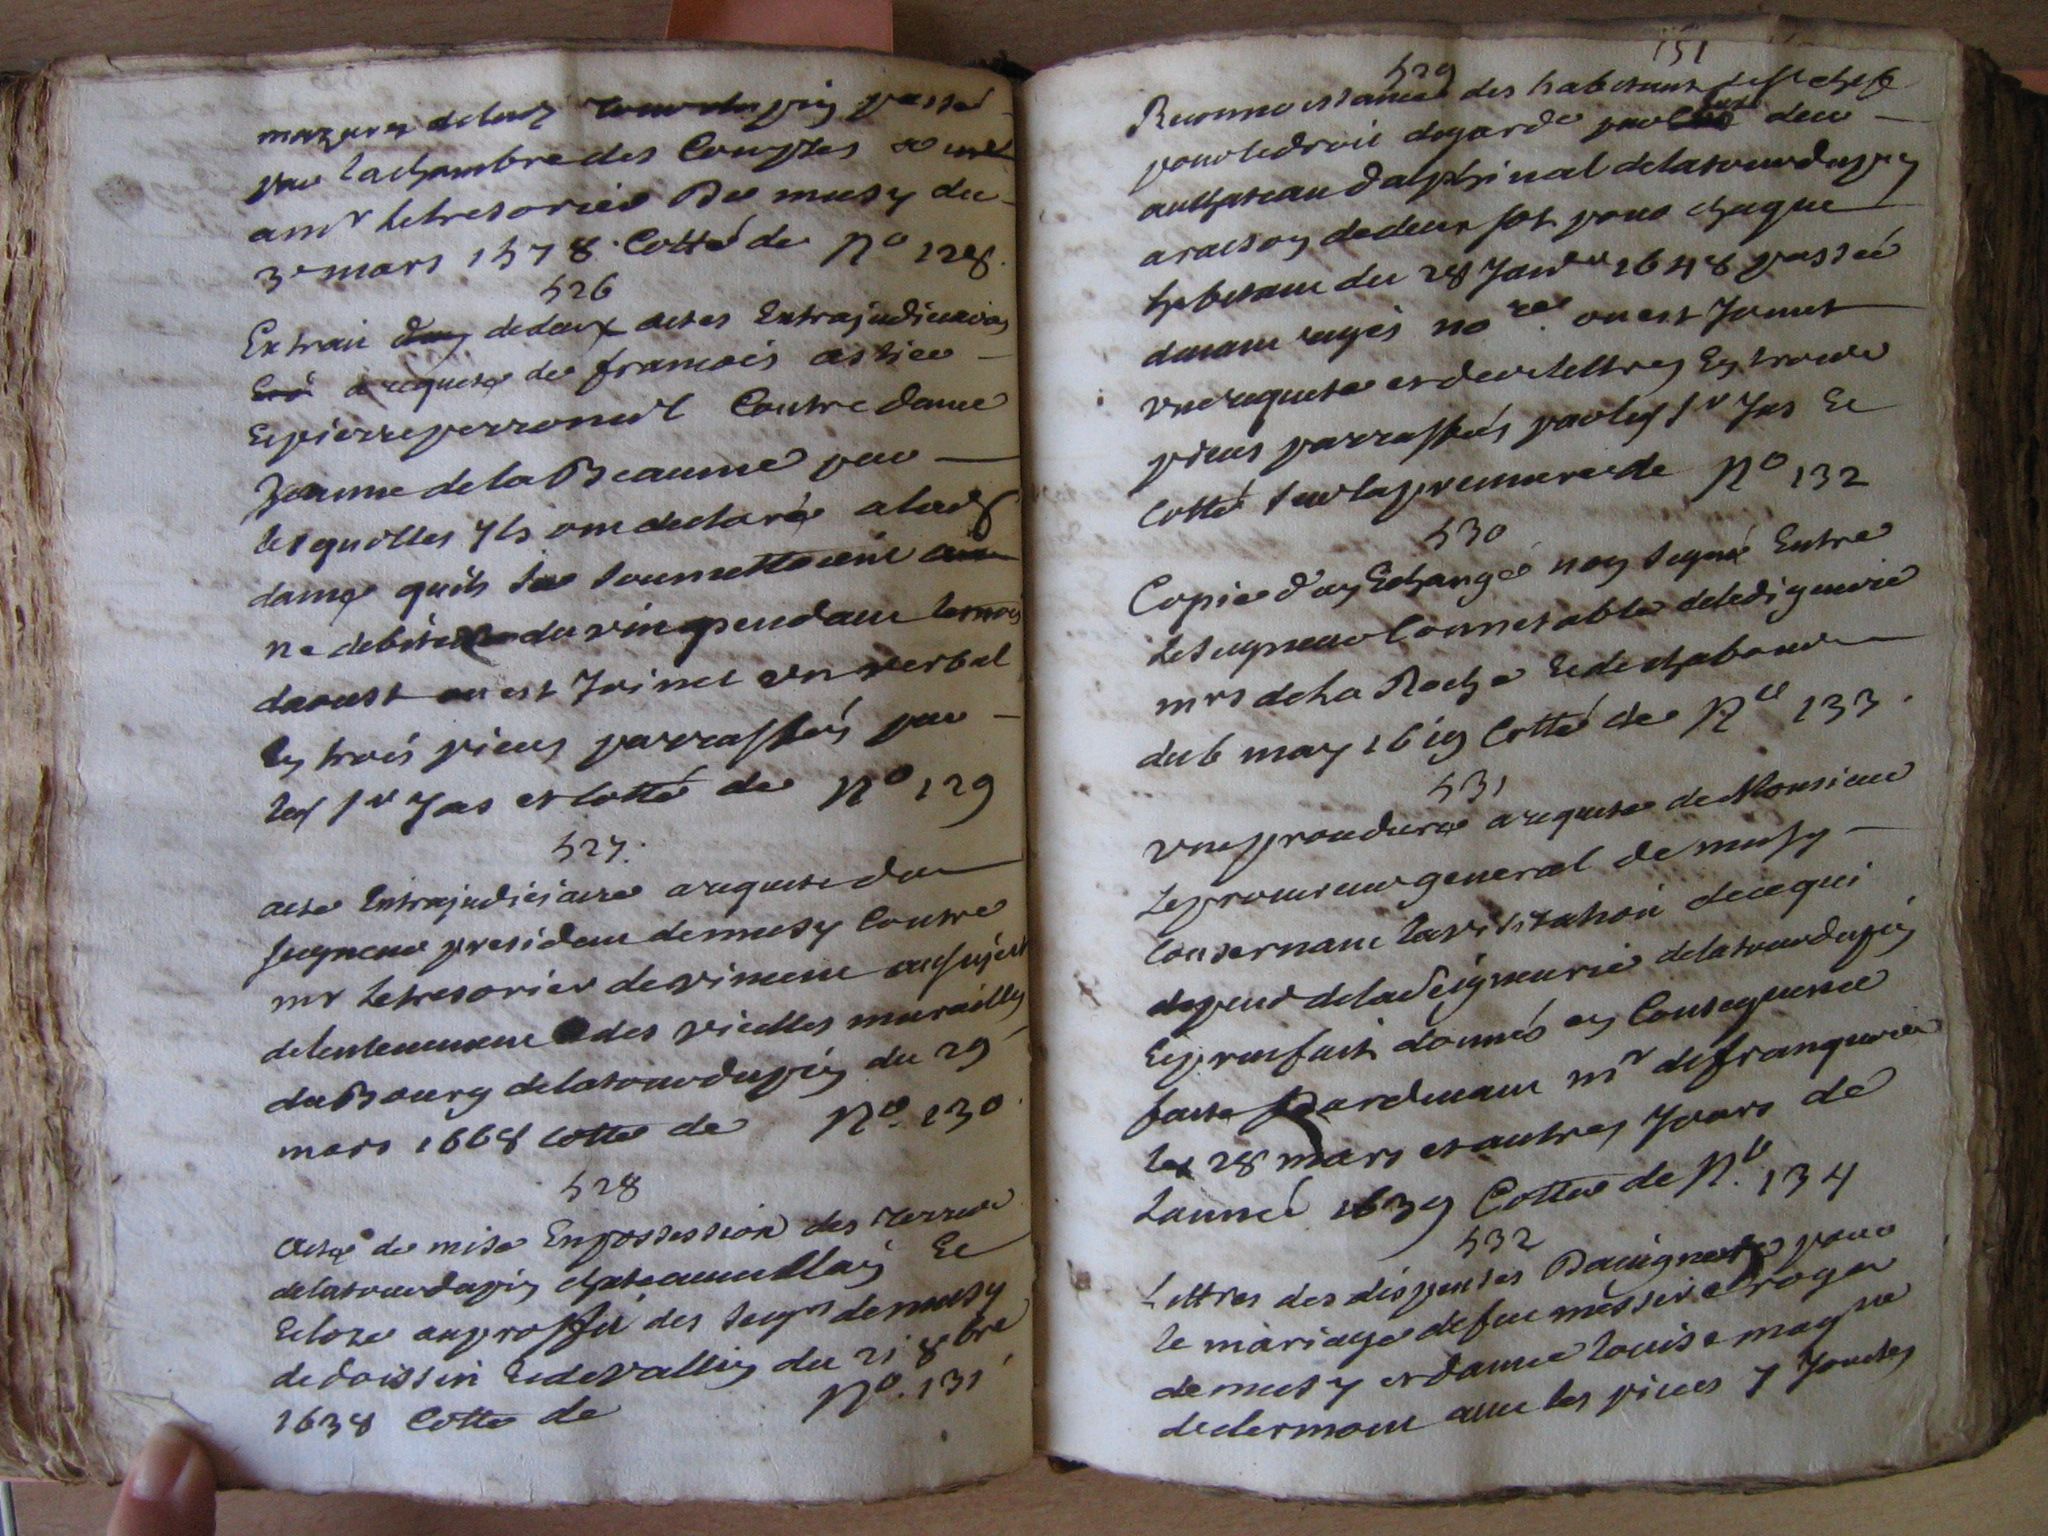 mazures de lad tour du pin passé
par la chambre des Comptes a
a mr le tresorier De musy du
3e mars 1578 Cotté de No 128.
526
Extrait de deux actes Extrajudiciaires
a requete de francois astier
Et pierre perronnet Contre dame
Jeanne de la Beaume par
lesquelles yls ont declaré a lad
dame quils se soumettoient
ne debiter du vin pendant le mois
daoust ou est Joinct vn verbal
les trois pieces parraffées par
led sr Jas et cotté de No 129
527.
acte Extrajudiciaire a requete du
seigneur president de musy Contre
mr le tresorier de vimene au sujet
de lentenement des vieilles murailles
du Bourg de la tour du pin du 29
mars 1668 cotté de No. 130
528
acte de mise En possession des terres
de la tour du pin chateauvillain Et
Eclose au proffit des seigrs de musy
de doissin Et de vallin du 21 8bre
1638 Cotté de No. 131
151
529
Reconnoissance des habitans
pour le droit de garde deu
au chateau dalphinal de la tour du pin
a raison de deux sols pour chaque
habitant du 28 Janver 1648 passée
devant rogés nore. ou est Joinct
vne requete et deux lettres En trois
pieces parraffées par led sr Jas Et
cotté sur la premiere de No 132
530
Copie d'un Echange non signé Entre
le seigneur Connetable de lediguiere
mrs de la Roche Et de chabons
du 6 may 1619 Cotté de No 133.
531
vne procedure a requete de Monsieur
le procureur general de musy
Consernant la visitation de ce qui
depend de la seigneurie de la tour du pin
Et prixfaits donnés en Consequence
faite Pardevant mr de franquieres
les 28 mars et autres Jours de
lannée 1639 Cotté de No. 134
532
Lettres des dispenses Davignon pour
le mariage de feu messire roger
de musy et dame louise magne
de clermont avec les pieces y Jointes